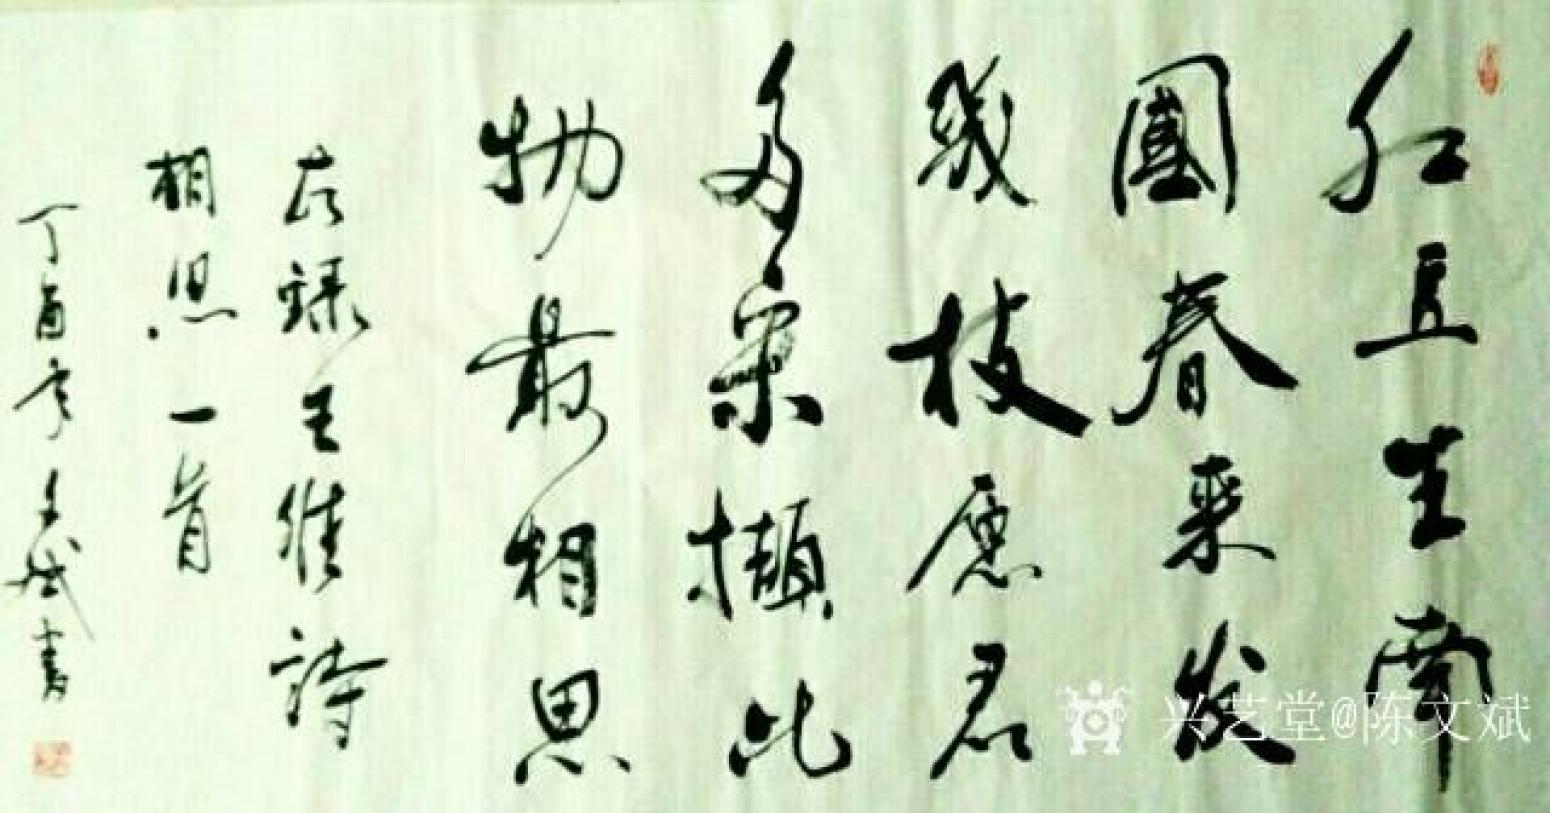 红豆生南
國春来发
幾枝愿君
多采擷此
物最相思
右録王維詩
相思一首
丁酉年文斌書
兴艺堂@陈文斌